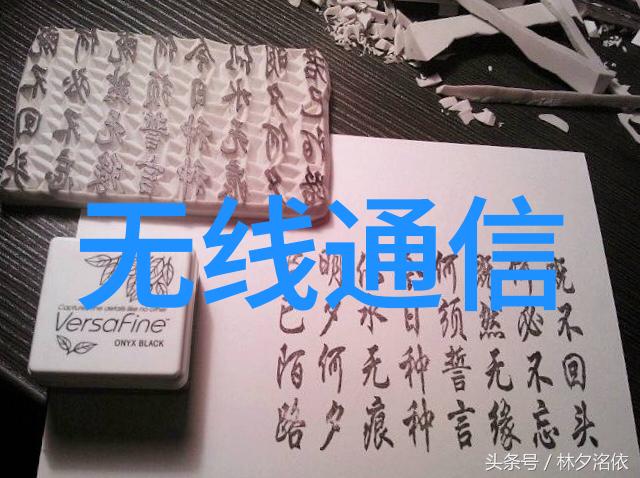 无线通信
VersaFine
Captures fine details like no other
ONYX BLACK
既不回头
何必不忘
既然无缘
何须誓言
今日种种
似水无痕
明夕何夕
君已陌路
头条号 / 林夕洺依